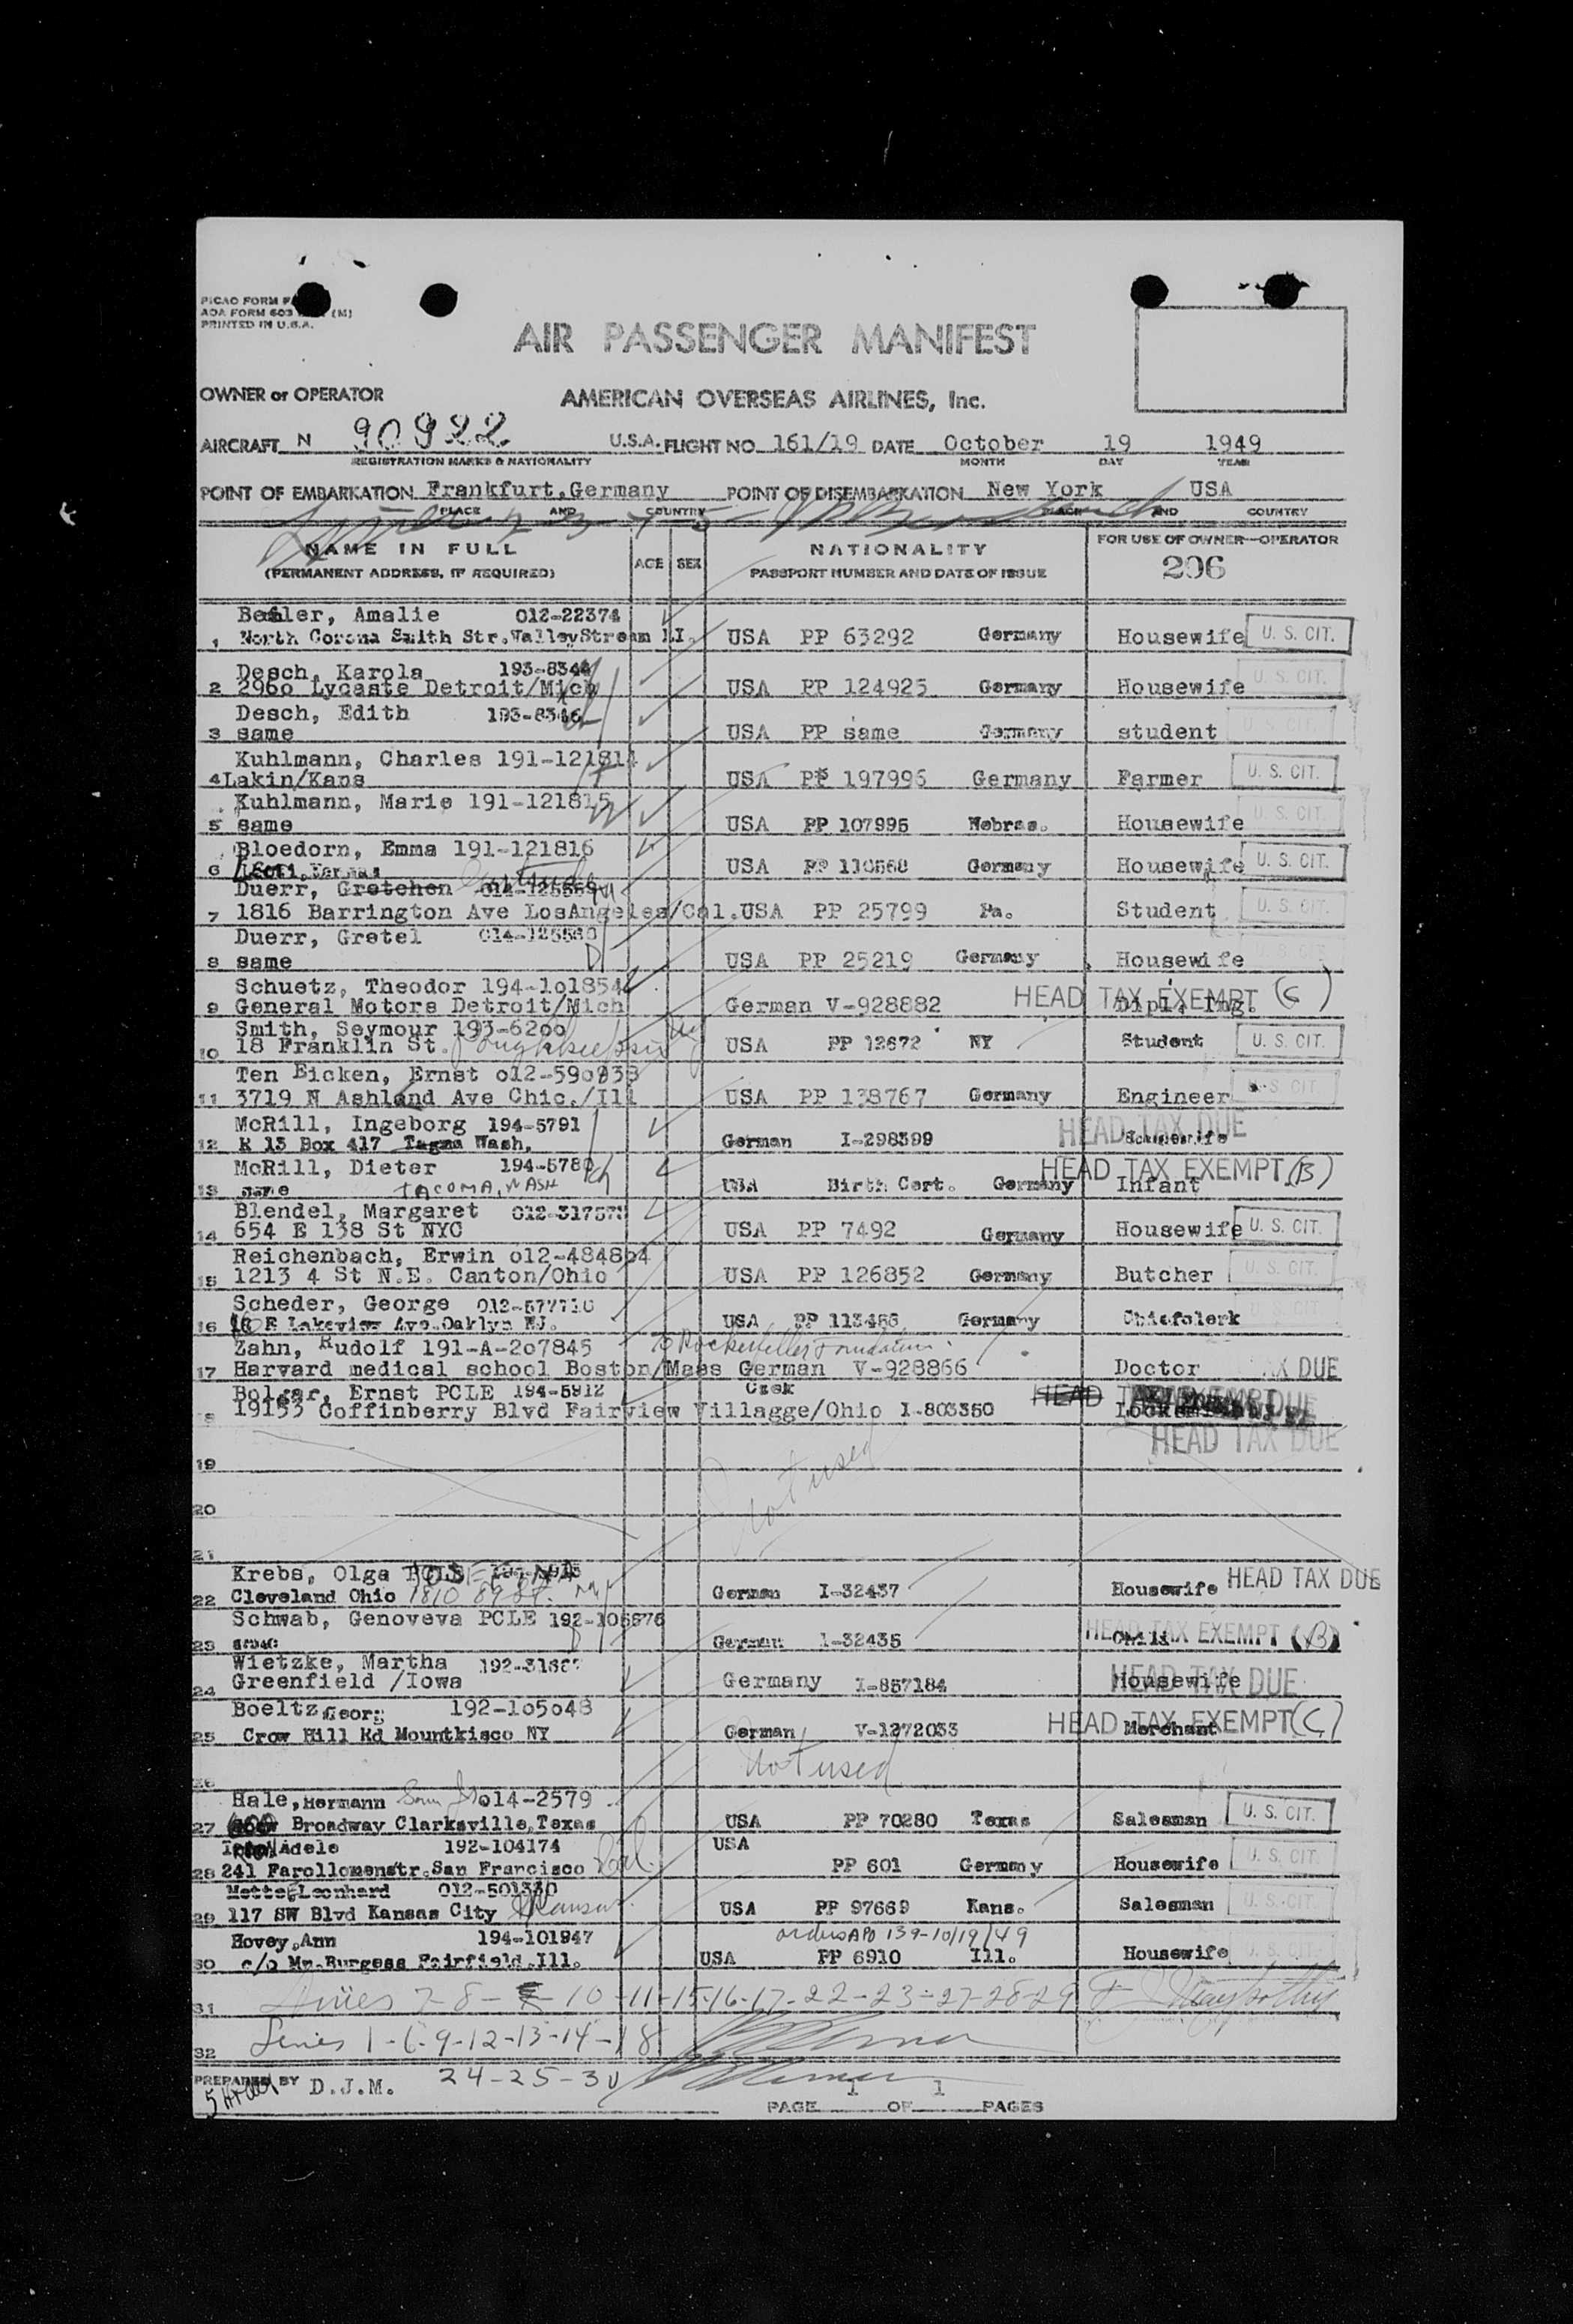 PICAO FORM
AOA FORM 603 (M)
PRINTED IN U.S.A.
AIR PASSENGER MANIFEST
OWNER or OPERATOR AMERICAN OVERSEAS AIRLINES, Inc.
AIRCRAFT N 90922 U.S.A. FLIGHT NO. 161/19 DATE October 19 1949
REGISTRATION MARKS & NATIONALITY MONTH DAY YEAR
POINT OF EMBARKATION Frankfurt,Germany POINT OF DISEMBARKATION New York USA
PLACE AND COUNTRY PLACE AND COUNTRY
NAME IN FULL AGE SEX NATIONALITY FOR USE OF OWNER—OPERATOR
(PERMANENT ADDRESS, IF REQUIRED) PASSPORT NUMBER AND DATE OF ISSUE 206
Amalie 012-22374
1 North Corona Smith Str.Valley Stream LI. USA PP 63292 Germany Housewife U. S. CIT.
Desch, Karola 193-8344
2 2960 Lycaste Detroit/Mich USA PP 124925 Germany Housewife U. S. CIT.
Desch, Edith 193-8346
3 same USA PP same Germany student U. S. CIT.
Kuhlmann, Charles 191-121814
4 Lakin/Kans USA PP 197996 Germany Farmer U. S. CIT.
Kuhlmann, Marie 191-121815
5 same USA PP 107995 Nebras. Housewife U. S. CIT.
Bloedorn, Emma 191-121816
6 USA PP 110568 Germany Housewife U. S. CIT.
Duerr, Gretchen
7 1816 Barrington Ave LosAngeles/Cal. USA PP 25799 Pa. Student U. S. CIT.
Duerr, Gretel 014-125560
8 same USA PP 25219 Germany Housewife U. S. CIT.
Schuetz, Theodor 194-101854
9 General Motors Detroit/Mich German V-928882 HEAD TAX EXEMPT (C) Dipl. Ing.
Smith, Seymour 193-6200
10 18 Franklin St. Poughkeepsie NY USA PP 12672 NY Student U. S. CIT.
Ten Eicken, Ernst 012-590938
11 3719 N Ashland Ave Chic./Ill USA PP 138767 Germany Engineer U. S. CIT.
McRill, Ingeborg 194-5791
12 R 13 Box 417 Wash, German I-298399 HEAD TAX DUE Housewife
McRill, Dieter 194-5780 HEAD TAX EXEMPT (B)
13 same TACOMA, WASH USA Birth Cert. Germany Infant
Blendel, Margaret 012-317573
14 654 E 138 St NYC USA PP 7492 Germany Housewife U. S. CIT.
Reichenbach, Erwin 012-484804
15 1213 4 St N.E. Canton/Ohio USA PP 126852 Germany Butcher U. S. CIT.
Scheder, George 012-577710
16 16 E Lakeview Ave.Oaklyn NJ. USA PP 113486 Germany Chiefclerk U. S. CIT.
Zahn, Rudolf 191-A-207845 To Rockefeller Foundation
17 Harvard medical school Boston/Mass German V-928866 Doctor TAX DUE
Bolgar, Ernst PCLE 194-5912 Czek HEAD TAX EXEMPT
18 19153 Coffinberry Blvd Fairview Villagge/Ohio I-803350
HEAD TAX DUE
19 Not used
20
21
Krebs, Olga
22 Cleveland Ohio 1810 89 St. German I-32437 Housewife HEAD TAX DUE
Schwab, Genoveva PCLE 192-105876
23 same German I-32435 Child HEAD TAX EXEMPT (B)
Wietzke, Martha
24 Greenfield /Iowa Germany I-857184 Housewife HEAD TAX DUE
Boeltz Georg 192-105048
25 Crow Hill Rd Mountkisco NY German V-1272033 Merchant HEAD TAX EXEMPT (C)
26 Not used
Hale, Hermann 014-2579
27 Broadway Clarksville,Texas USA PP 70280 Texas Salesman U. S. CIT.
Adele 192-104174 USA
28 241 Farollomenstr.San Francisco Cal. PP 601 Germany Housewife U. S. CIT.
Leonhard 012-501330
29 117 SW Blvd Kansas City Kansas USA PP 97669 Kans. Salesman U. S. CIT.
Hovey,Ann 194-101947 orders APO 139-10/19/49
30 c/o Mr.Burgess Fairfield.Ill. USA PP 6910 Ill. Housewife U. S. CIT.
31 Lines 7-8- -10-11-15-16-17-22-23-27-28-29
32 Lines 1-6-9-12-13-14-18
PREPARED BY D.J.M. 24-25-30
PAGE 1 OF 1 PAGES